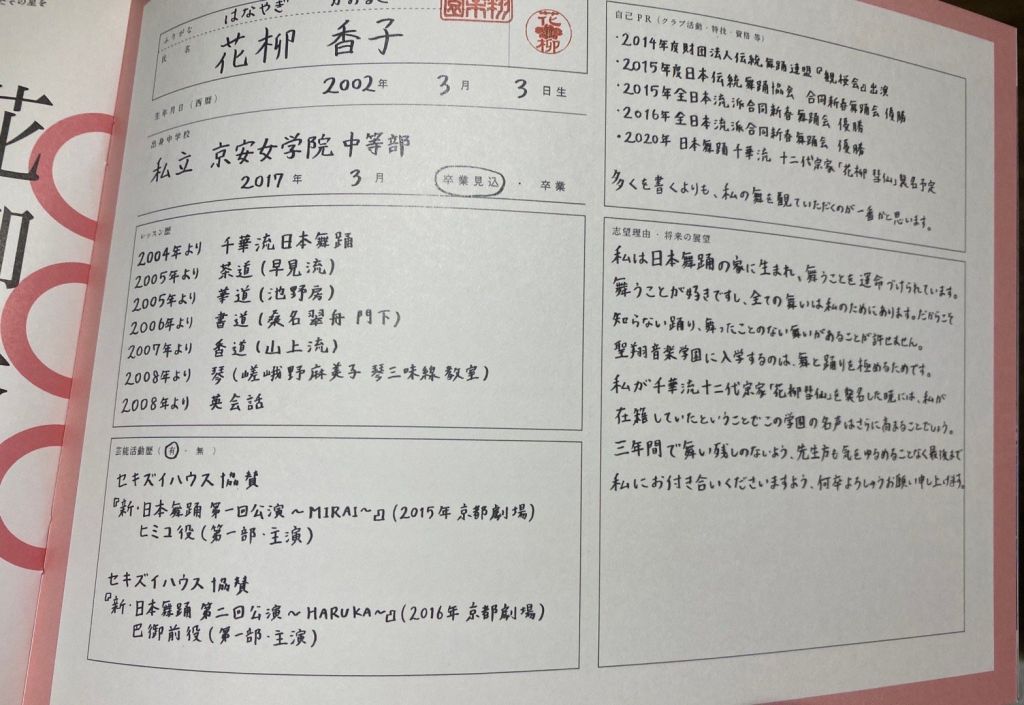 ふりがな
はなやぎ かおるこ
氏名
花柳 香子
花柳
2002年 3月 3日生
生年月日(西暦)
出身中学校
私立 京安女学院中等部
2017年 3月 卒業見込 ・ 卒業
レッスン歴
2004年より 千華流日本舞踊
2005年より 茶道(早見流)
2005年より 華道(池野房)
2006年より 書道(桑名翠舟 門下)
2007年より 香道(山上流)
2008年より 琴(嵯峨野麻美子 琴三味線教室)
2008年より 英会話
芸能活動歴(有・無)
セキズイハウス協賛
『新・日本舞踊 第一回公演〜MIRAI〜』(2015年 京都劇場)
ヒミコ役(第一部・主演)
セキズイハウス協賛
『新・日本舞踊 第二回公演〜HARUKA〜』(2016年 京都劇場)
巴御前役(第一部・主演)
自己PR(クラブ活動・特技・資格 等)
・2014年度財団法人伝統舞踊連盟『観桜会』出演
・2015年度日本伝統舞踊協会 合同新春舞踊会 優勝
・2015年全日本流派合同新春舞踊会 優勝
・2016年全日本流派合同新春舞踊会 優勝
・2020年 日本舞踊千華流 十二代宗家「花柳彗仙」襲名予定
多くを書くよりも、私の舞を観ていただくのが一番かと思います。
志望理由・将来の展望
私は日本舞踊の家に生まれ、舞うことを運命づけられています。
舞うことが好きですし、全ての舞いは私のためにあります。だからこそ
知らない踊り、舞ったことのない舞いがあることが許せません。
聖翔音楽学園に入学するのは、舞と踊りを極めるためです。
私が千華流十二代宗家「花柳彗仙」を襲名した暁には、私が
在籍していたということでこの学園の名声はさらに高まることでしょう。
三年間で舞い残しのないよう、先生方も気をゆるめることなく最後まで
私にお付き合いくださいますよう、何卒よろしゅうお願い申し上げます。